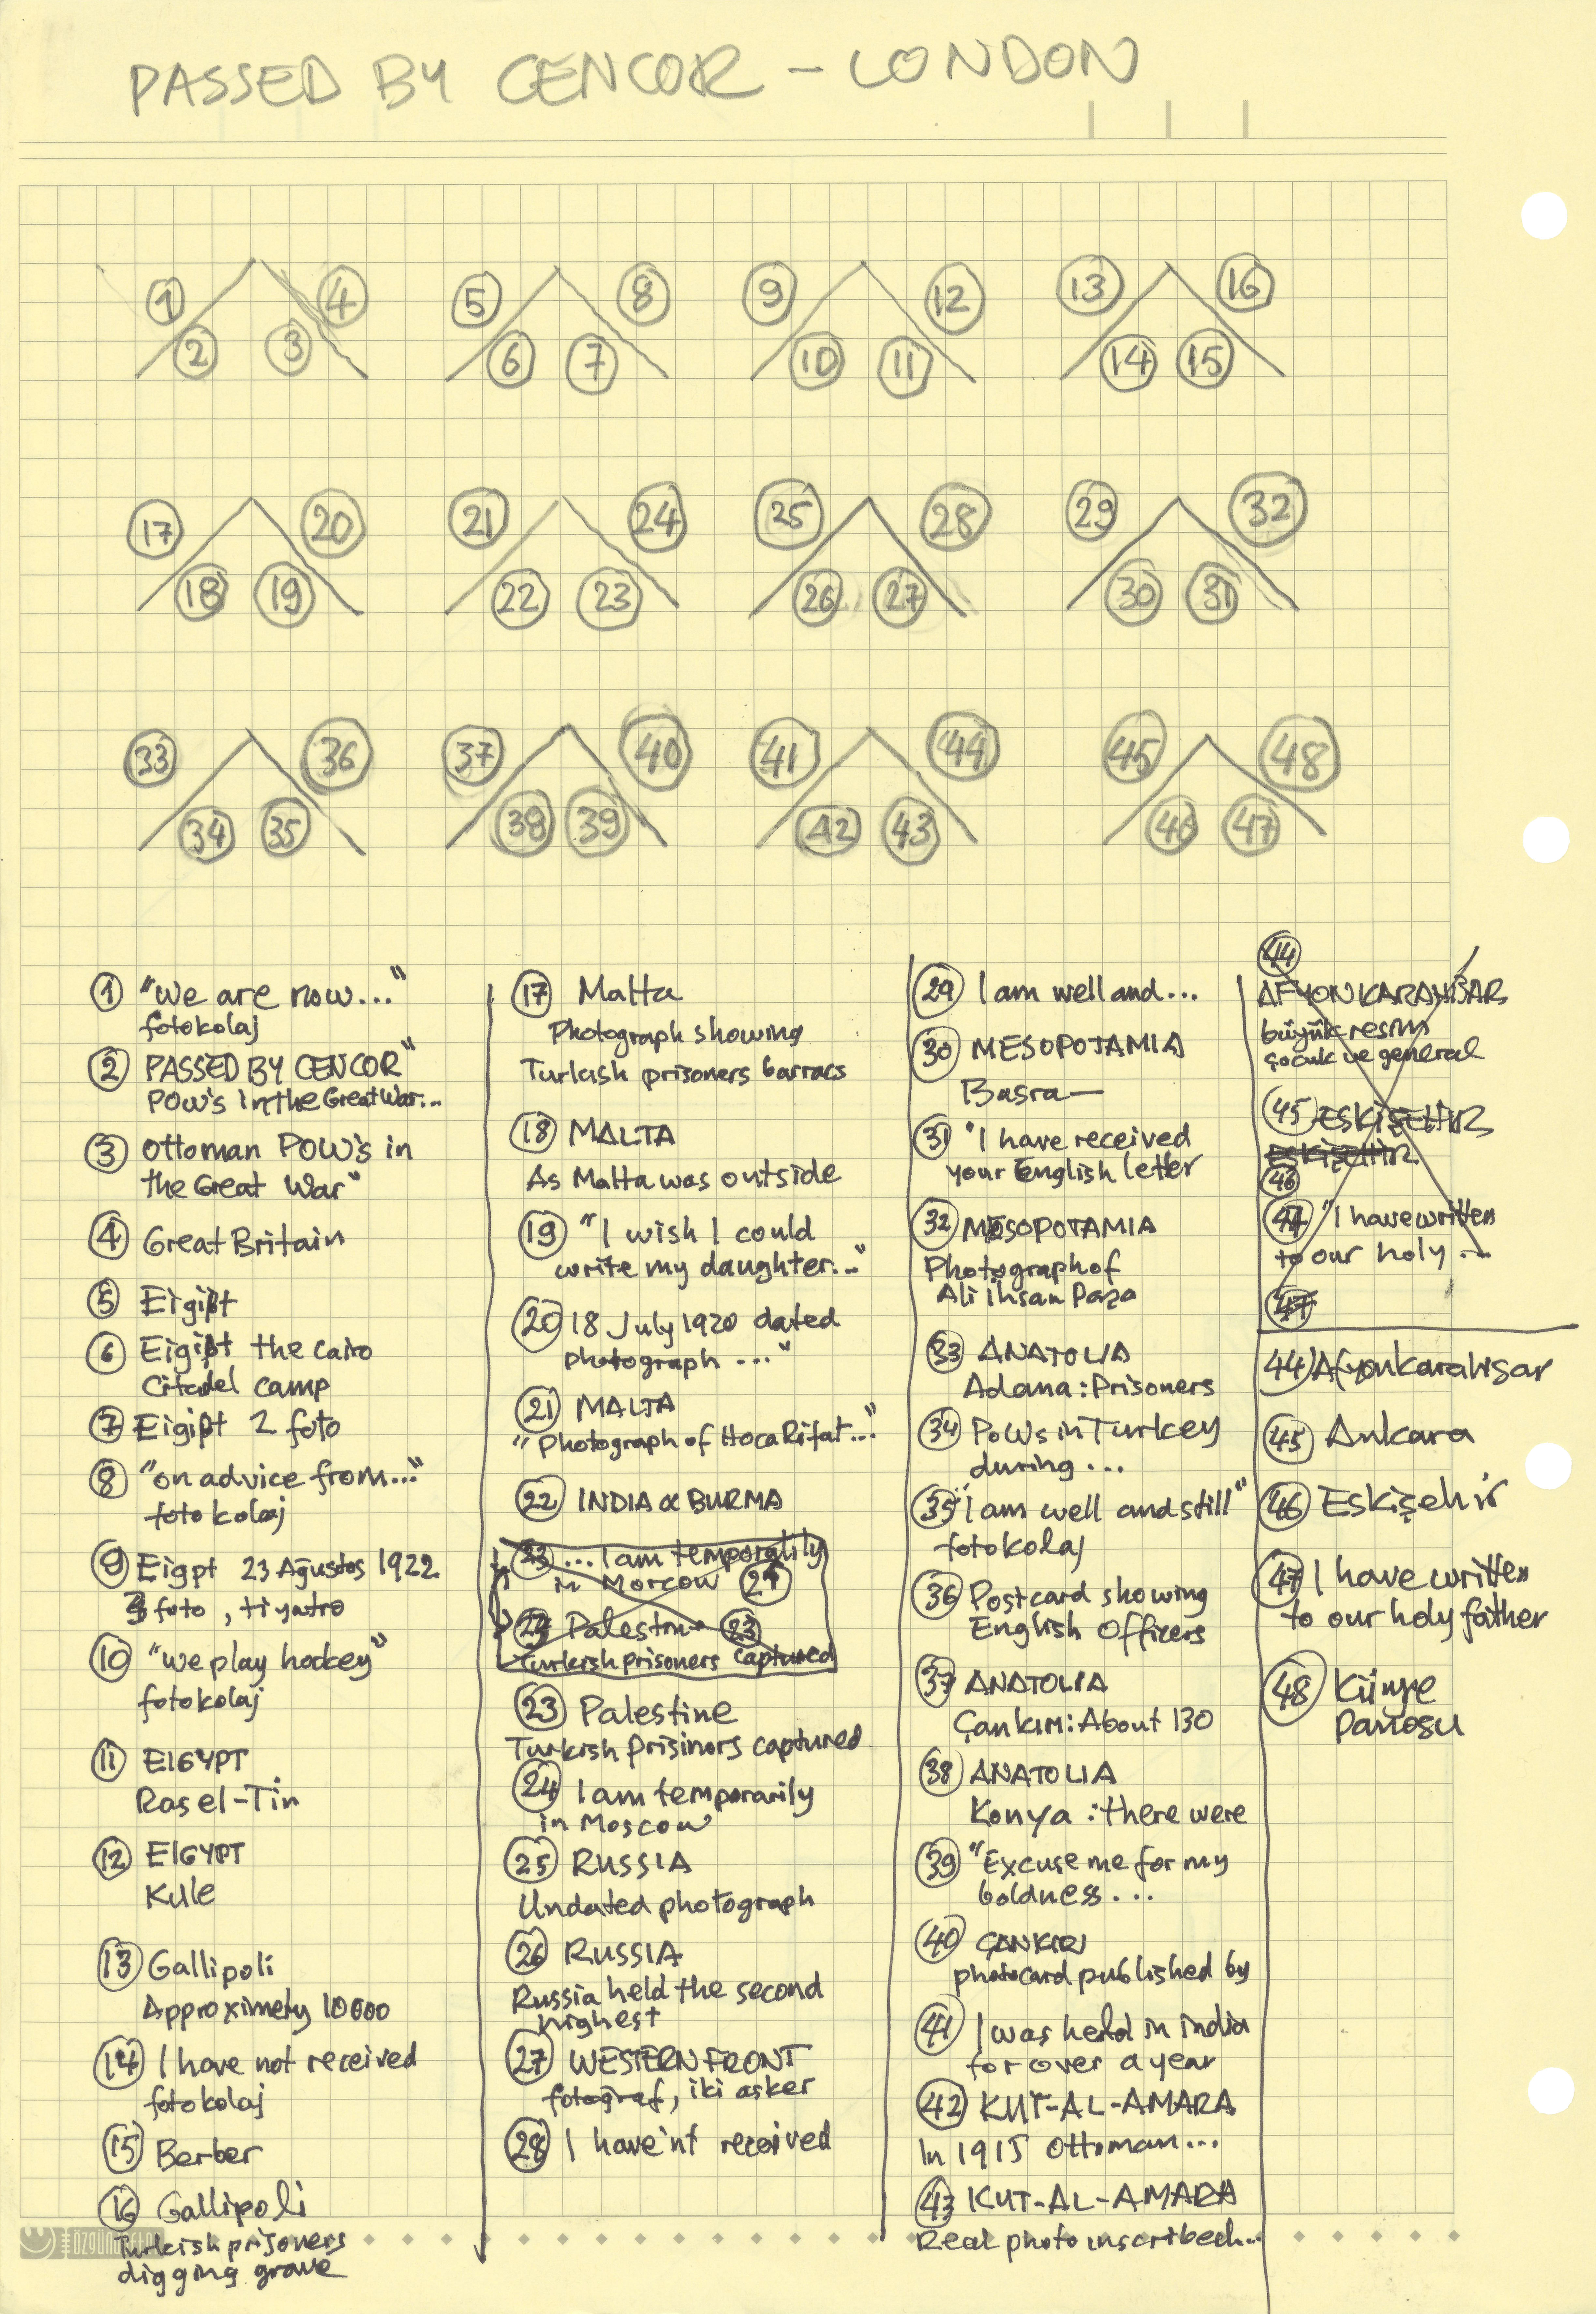 PASSED BY CENCOR - LONDON
1 4 5 8 9 12 13 16
2 3 6 7 10 11 14 15
17 20 21 24 25 28 29 32
18 19 22 23 26 27 30 31
33 36 37 40 41 44 45 48
34 35 38 39 42 43 46 47
1 "We are now..."
fotokolaj
2 PASSED BY CENCOR"
POW's in the Great War...
3 Ottoman POW's in
the Great War"
4 Great Britain
5 Eigipt
6 Eigipt the Cairo
Citadel camp
7 Eigipt 2 foto
8 "on advice from..."
fotokolaj
9 Eigpt 23 Ağustos 1922
3 foto, tiyatro
10 "we play hockey"
fotokolaj
11 EIGYPT
Ras el-Tin
12 EIGYPT
Kule
13 Gallipoli
Approximety 10000
14 I have not received
fotokolaj
15 Berber
16 Gallipoli
Turkish prisoners
digging grave
17 Malta
Photograph showing
Turkish prisoners barracs
18 MALTA
As Malta was outside
19 "I wish I could
write my daughter..."
20 18 July 1920 dated
photograph ..."
21 MALTA
"Photograph of Hoca Rifat..."
22 INDIA & BURMA
23 ... I am temporalily
in Morcow 24
24 Palestin 23
Turkish prisoners captured
23 Palestine
Turkish prisinors captured
24 I am temporarily
in Moscow
25 RUSSIA
Undated photograph
26 RUSSIA
Russia held the second
highest
27 WESTERN FRONT
fotograf, iki asker
28 I have'nt received
29 I am well and...
30 MESOPOTAMIA
Basra—
31 "I have received
your English letter
32 MESOPOTAMIA
Photograph of
Ali ihsan Paşa
33 ANATOLIA
Adana: Prisoners
34 POWs in Turkey
during...
35 "I am well and still"
fotokolaj
36 Postcard showing
English Officers
37 ANATOLIA
Çankırı: About 130
38 ANATOLIA
Konya: there were
39 "Excuse me for my
boldness...
40 ÇANKIRI
photocard published by
41 I was held in india
for over a year
42 KUT-AL-AMARA
In 1915 Ottoman...
43 KUT-AL-AMARA
Real photo inscribed...
44
AFYONKARAHİSAR
büyük resim
çocuk ve general
45 ESKİŞEHİR
ESKİŞEHİR
46
47 "I have written
to our holy ...
47
44 Afyonkarahisar
45 Ankara
46 Eskişehir
47 I have written
to our holy father
48 Künye
panosu